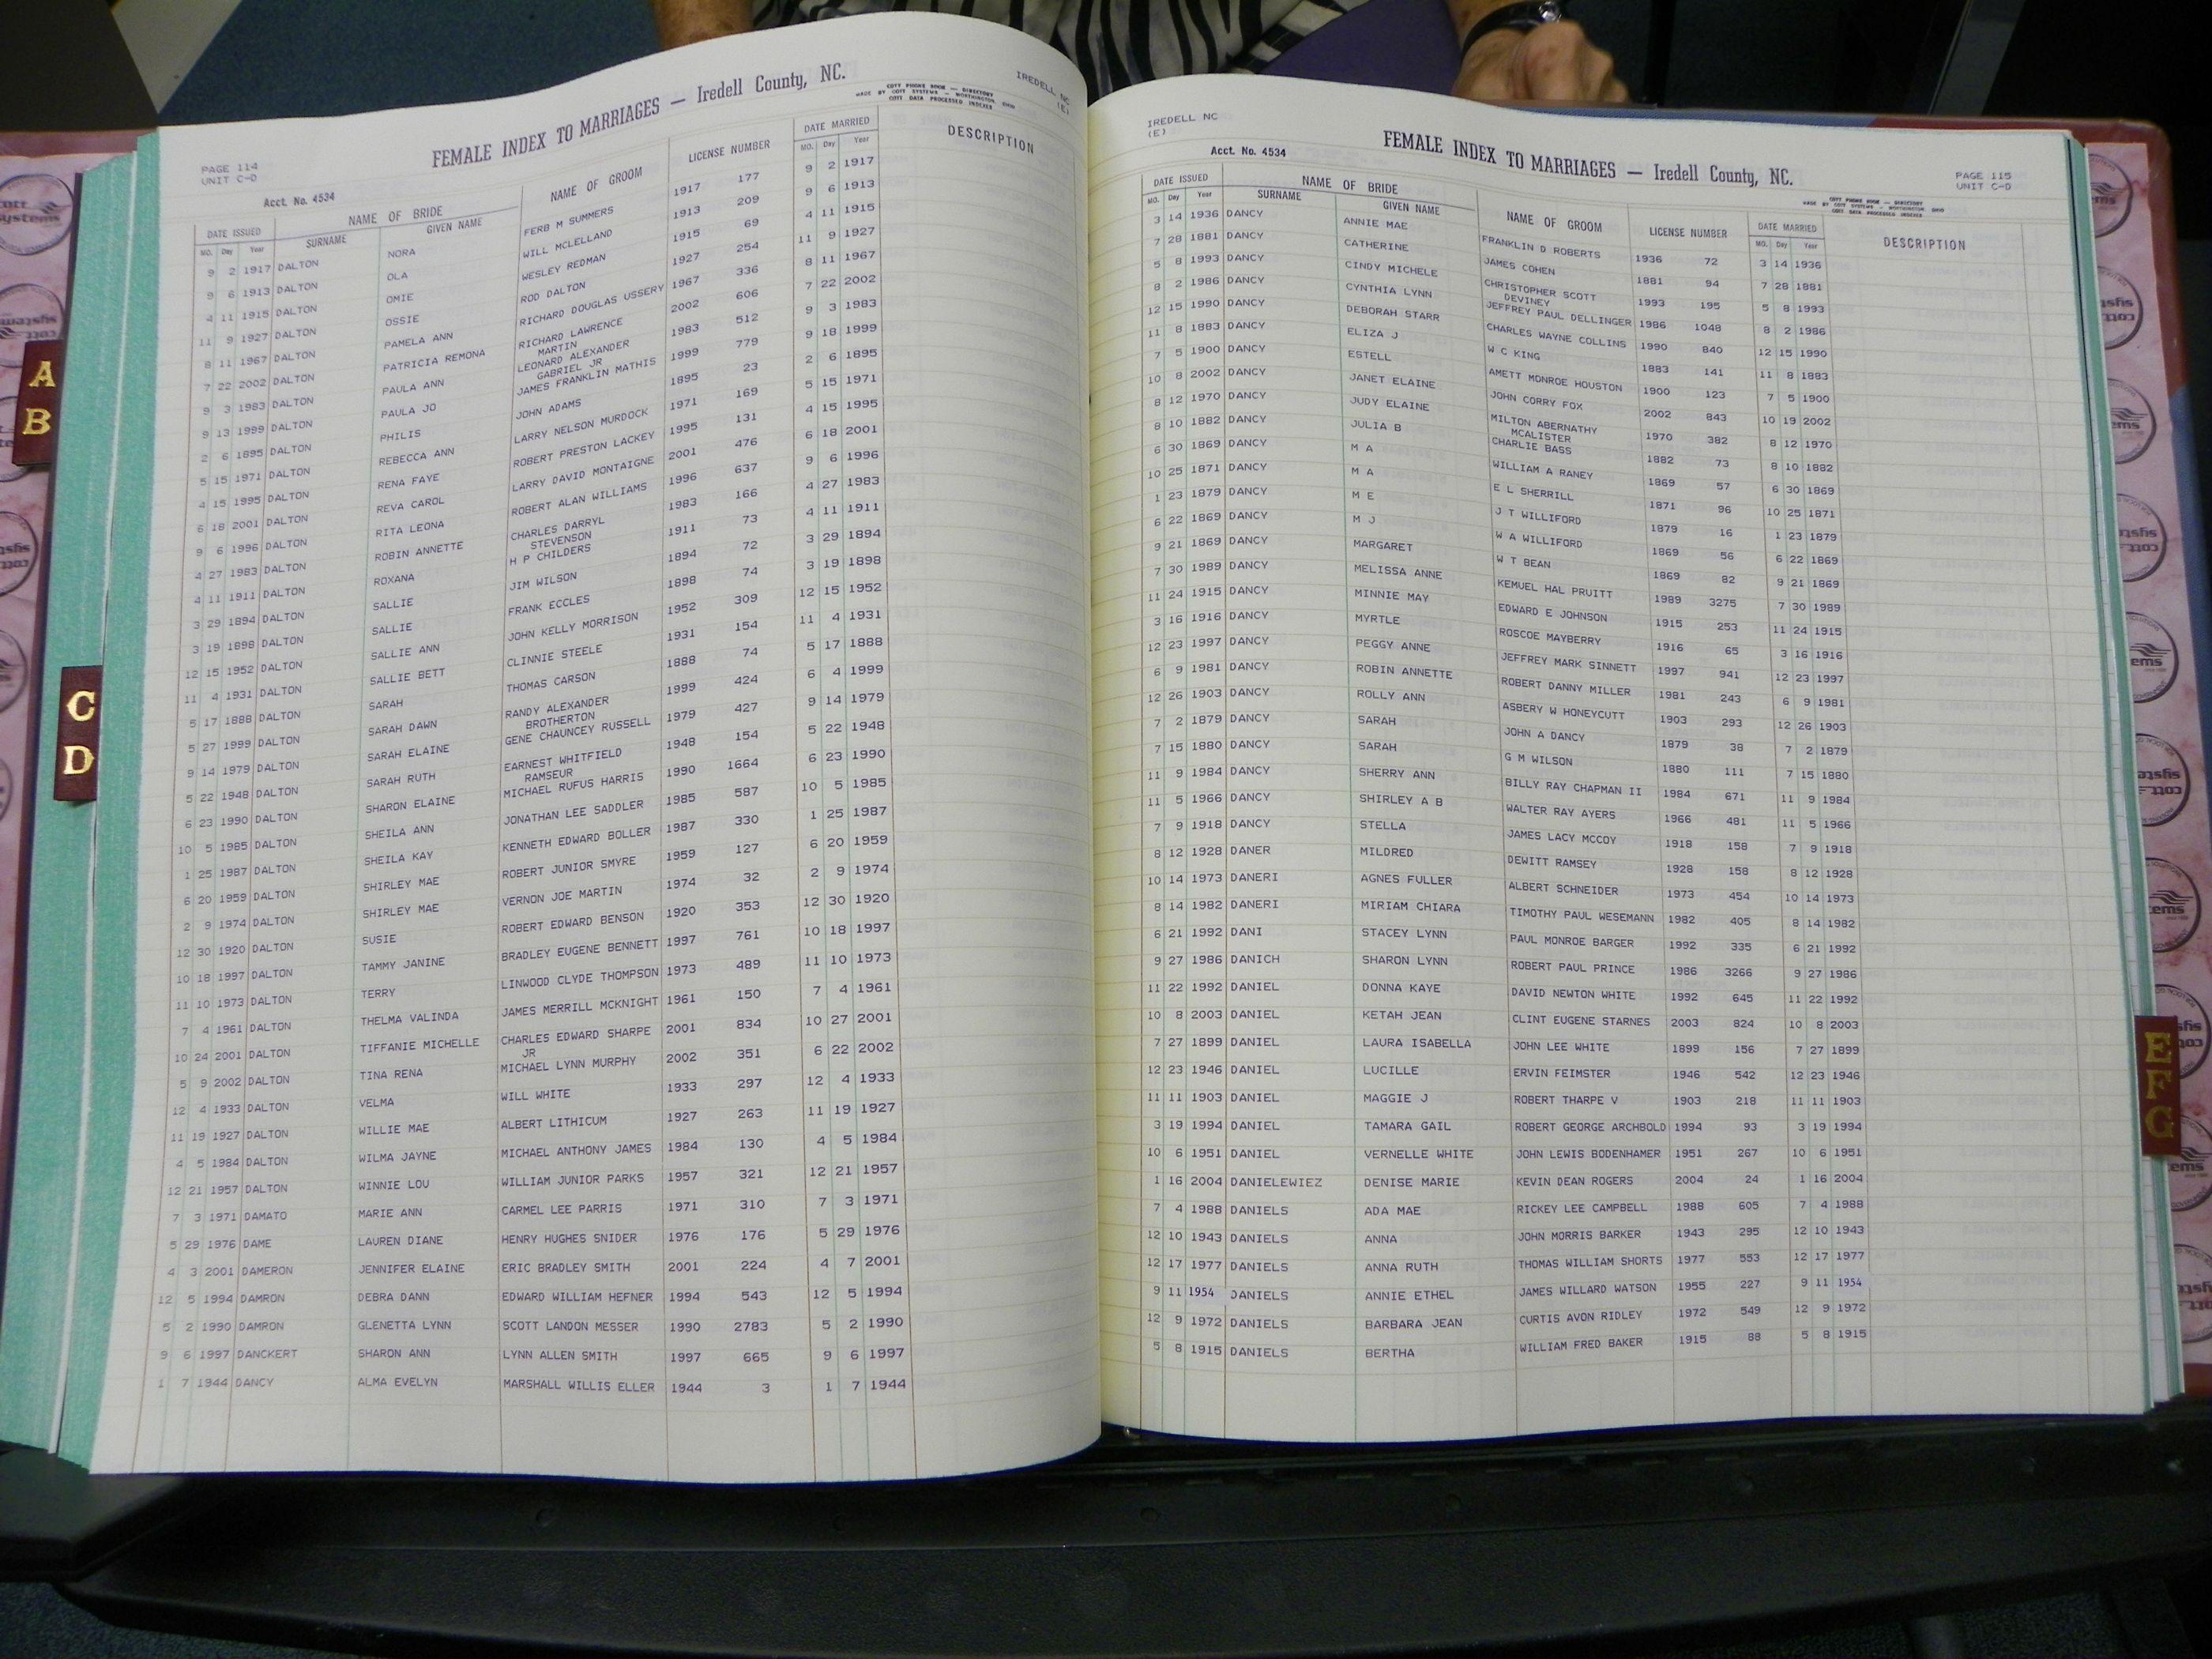 PAGE 114
UNIT C-D
FEMALE INDEX TO MARRIAGES — Iredell County, NC.
COTT PHONE BOOK — DIRECTORY
MADE BY COTT SYSTEMS — WORTHINGTON, OHIO
COTT DATA PROCESSED INDEXES
IREDELL NC
(E)
Acct. No. 4534
DATE ISSUED NAME OF BRIDE NAME OF GROOM LICENSE NUMBER DATE MARRIED DESCRIPTION
MO. Day Year SURNAME GIVEN NAME MO. Day Year
9 2 1917 DALTON NORA FERB M SUMMERS 1917 177 9 2 1917
9 6 1913 DALTON OLA WILL MCLELLAND 1913 209 9 6 1913
4 11 1915 DALTON OMIE WESLEY REDMAN 1915 69 4 11 1915
11 9 1927 DALTON OSSIE ROD DALTON 1927 254 11 9 1927
8 11 1967 DALTON PAMELA ANN RICHARD DOUGLAS USSERY 1967 336 8 11 1967
7 22 2002 DALTON PATRICIA REMONA RICHARD LAWRENCE 2002 606 7 22 2002
MARTIN
9 3 1983 DALTON PAULA ANN LEONARD ALEXANDER 1983 512 9 3 1983
GABRIEL JR
9 13 1999 DALTON PAULA JO JAMES FRANKLIN MATHIS 1999 779 9 18 1999
2 6 1895 DALTON PHILIS JOHN ADAMS 1895 23 2 6 1895
5 15 1971 DALTON REBECCA ANN LARRY NELSON MURDOCK 1971 169 5 15 1971
4 15 1995 DALTON RENA FAYE ROBERT PRESTON LACKEY 1995 131 4 15 1995
6 18 2001 DALTON REVA CAROL LARRY DAVID MONTAIGNE 2001 476 6 18 2001
9 6 1996 DALTON RITA LEONA ROBERT ALAN WILLIAMS 1996 637 9 6 1996
4 27 1983 DALTON ROBIN ANNETTE CHARLES DARRYL 1983 166 4 27 1983
STEVENSON
4 11 1911 DALTON ROXANA H P CHILDERS 1911 73 4 11 1911
3 29 1894 DALTON SALLIE JIM WILSON 1894 72 3 29 1894
3 19 1898 DALTON SALLIE FRANK ECCLES 1898 74 3 19 1898
12 15 1952 DALTON SALLIE ANN JOHN KELLY MORRISON 1952 309 12 15 1952
11 4 1931 DALTON SALLIE BETT CLINNIE STEELE 1931 154 11 4 1931
5 17 1888 DALTON SARAH THOMAS CARSON 1888 74 5 17 1888
5 27 1999 DALTON SARAH DAWN RANDY ALEXANDER 1999 424 6 4 1999
BROTHERTON
9 14 1979 DALTON SARAH ELAINE GENE CHAUNCEY RUSSELL 1979 427 9 14 1979
5 22 1948 DALTON SARAH RUTH EARNEST WHITFIELD 1948 154 5 22 1948
RAMSEUR
6 23 1990 DALTON SHARON ELAINE MICHAEL RUFUS HARRIS 1990 1664 6 23 1990
10 5 1985 DALTON SHEILA ANN JONATHAN LEE SADDLER 1985 587 10 5 1985
1 25 1987 DALTON SHEILA KAY KENNETH EDWARD BOLLER 1987 330 1 25 1987
6 20 1959 DALTON SHIRLEY MAE ROBERT JUNIOR SMYRE 1959 127 6 20 1959
2 9 1974 DALTON SHIRLEY MAE VERNON JOE MARTIN 1974 32 2 9 1974
12 30 1920 DALTON SUSIE ROBERT EDWARD BENSON 1920 353 12 30 1920
10 18 1997 DALTON TAMMY JANINE BRADLEY EUGENE BENNETT 1997 761 10 18 1997
11 10 1973 DALTON TERRY LINWOOD CLYDE THOMPSON 1973 489 11 10 1973
7 4 1961 DALTON THELMA VALINDA JAMES MERRILL MCKNIGHT 1961 150 7 4 1961
10 24 2001 DALTON TIFFANIE MICHELLE CHARLES EDWARD SHARPE 2001 834 10 27 2001
JR
5 9 2002 DALTON TINA RENA MICHAEL LYNN MURPHY 2002 351 6 22 2002
12 4 1933 DALTON VELMA WILL WHITE 1933 297 12 4 1933
11 19 1927 DALTON WILLIE MAE ALBERT LITHICUM 1927 263 11 19 1927
4 5 1984 DALTON WILMA JAYNE MICHAEL ANTHONY JAMES 1984 130 4 5 1984
12 21 1957 DALTON WINNIE LOU WILLIAM JUNIOR PARKS 1957 321 12 21 1957
7 3 1971 DAMATO MARIE ANN CARMEL LEE PARRIS 1971 310 7 3 1971
5 29 1976 DAME LAUREN DIANE HENRY HUGHES SNIDER 1976 176 5 29 1976
4 3 2001 DAMERON JENNIFER ELAINE ERIC BRADLEY SMITH 2001 224 4 7 2001
12 5 1994 DAMRON DEBRA DANN EDWARD WILLIAM HEFNER 1994 543 12 5 1994
5 2 1990 DAMRON GLENETTA LYNN SCOTT LANDON MESSER 1990 2783 5 2 1990
9 6 1997 DANCKERT SHARON ANN LYNN ALLEN SMITH 1997 665 9 6 1997
1 7 1944 DANCY ALMA EVELYN MARSHALL WILLIS ELLER 1944 3 1 7 1944
A
B
C
D
IREDELL NC
(E)
Acct. No. 4534
FEMALE INDEX TO MARRIAGES — Iredell County, NC.
PAGE 115
UNIT C-D
COTT PHONE BOOK — DIRECTORY
MADE BY COTT SYSTEMS — WORTHINGTON, OHIO
COTT DATA PROCESSED INDEXES
DATE ISSUED NAME OF BRIDE NAME OF GROOM LICENSE NUMBER DATE MARRIED DESCRIPTION
MO. Day Year SURNAME GIVEN NAME MO. Day Year
3 14 1936 DANCY ANNIE MAE FRANKLIN D ROBERTS 1936 72 3 14 1936
7 28 1881 DANCY CATHERINE JAMES COHEN 1881 94 7 28 1881
5 8 1993 DANCY CINDY MICHELE CHRISTOPHER SCOTT 1993 195 5 8 1993
DEVINEY
8 2 1986 DANCY CYNTHIA LYNN JEFFREY PAUL DELLINGER 1986 1048 8 2 1986
12 15 1990 DANCY DEBORAH STARR CHARLES WAYNE COLLINS 1990 840 12 15 1990
11 8 1883 DANCY ELIZA J W C KING 1883 141 11 8 1883
7 5 1900 DANCY ESTELL AMETT MONROE HOUSTON 1900 123 7 5 1900
10 8 2002 DANCY JANET ELAINE JOHN CORRY FOX 2002 843 10 19 2002
8 12 1970 DANCY JUDY ELAINE MILTON ABERNATHY 1970 382 8 12 1970
MCALISTER
8 10 1882 DANCY JULIA B CHARLIE BASS 1882 73 8 10 1882
6 30 1869 DANCY M A WILLIAM A RANEY 1869 57 6 30 1869
10 25 1871 DANCY M A E L SHERRILL 1871 96 10 25 1871
1 23 1879 DANCY M E J T WILLIFORD 1879 16 1 23 1879
6 22 1869 DANCY M J W A WILLIFORD 1869 56 6 22 1869
9 21 1869 DANCY MARGARET W T BEAN 1869 82 9 21 1869
7 30 1989 DANCY MELISSA ANNE KEMUEL HAL PRUITT 1989 3275 7 30 1989
11 24 1915 DANCY MINNIE MAY EDWARD E JOHNSON 1915 253 11 24 1915
3 16 1916 DANCY MYRTLE ROSCOE MAYBERRY 1916 65 3 16 1916
12 23 1997 DANCY PEGGY ANNE JEFFREY MARK SINNETT 1997 941 12 23 1997
6 9 1981 DANCY ROBIN ANNETTE ROBERT DANNY MILLER 1981 243 6 9 1981
12 26 1903 DANCY ROLLY ANN ASBERY W HONEYCUTT 1903 293 12 26 1903
7 2 1879 DANCY SARAH JOHN A DANCY 1879 38 7 2 1879
7 15 1880 DANCY SARAH G M WILSON 1880 111 7 15 1880
11 9 1984 DANCY SHERRY ANN BILLY RAY CHAPMAN II 1984 671 11 9 1984
11 5 1966 DANCY SHIRLEY A B WALTER RAY AYERS 1966 481 11 5 1966
7 9 1918 DANCY STELLA JAMES LACY MCCOY 1918 158 7 9 1918
8 12 1928 DANER MILDRED DEWITT RAMSEY 1928 158 8 12 1928
10 14 1973 DANERI AGNES FULLER ALBERT SCHNEIDER 1973 454 10 14 1973
8 14 1982 DANERI MIRIAM CHIARA TIMOTHY PAUL WESEMANN 1982 405 8 14 1982
6 21 1992 DANI STACEY LYNN PAUL MONROE BARGER 1992 335 6 21 1992
9 27 1986 DANICH SHARON LYNN ROBERT PAUL PRINCE 1986 3266 9 27 1986
11 22 1992 DANIEL DONNA KAYE DAVID NEWTON WHITE 1992 645 11 22 1992
10 8 2003 DANIEL KETAH JEAN CLINT EUGENE STARNES 2003 824 10 8 2003
7 27 1899 DANIEL LAURA ISABELLA JOHN LEE WHITE 1899 156 7 27 1899
12 23 1946 DANIEL LUCILLE ERVIN FEIMSTER 1946 542 12 23 1946
11 11 1903 DANIEL MAGGIE J ROBERT THARPE V 1903 218 11 11 1903
3 19 1994 DANIEL TAMARA GAIL ROBERT GEORGE ARCHBOLD 1994 93 3 19 1994
10 6 1951 DANIEL VERNELLE WHITE JOHN LEWIS BODENHAMER 1951 267 10 6 1951
1 16 2004 DANIELEWIEZ DENISE MARIE KEVIN DEAN ROGERS 2004 24 1 16 2004
7 4 1988 DANIELS ADA MAE RICKEY LEE CAMPBELL 1988 605 7 4 1988
12 10 1943 DANIELS ANNA JOHN MORRIS BARKER 1943 295 12 10 1943
12 17 1977 DANIELS ANNA RUTH THOMAS WILLIAM SHORTS 1977 553 12 17 1977
9 11 1954 DANIELS ANNIE ETHEL JAMES WILLARD WATSON 1955 227 9 11 1954
12 9 1972 DANIELS BARBARA JEAN CURTIS AVON RIDLEY 1972 549 12 9 1972
5 8 1915 DANIELS BERTHA WILLIAM FRED BAKER 1915 88 5 8 1915
E
F
G